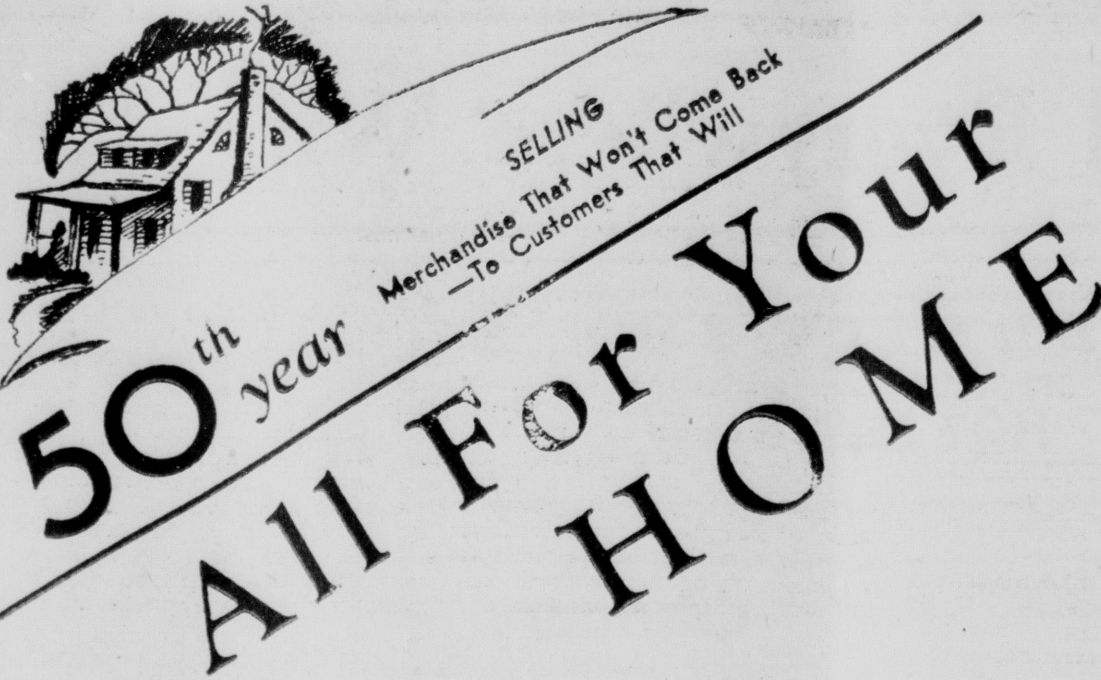 SELLING
Merchandise That Won't Come Back
—To Customers That Will
50th year
All For Your
HOME